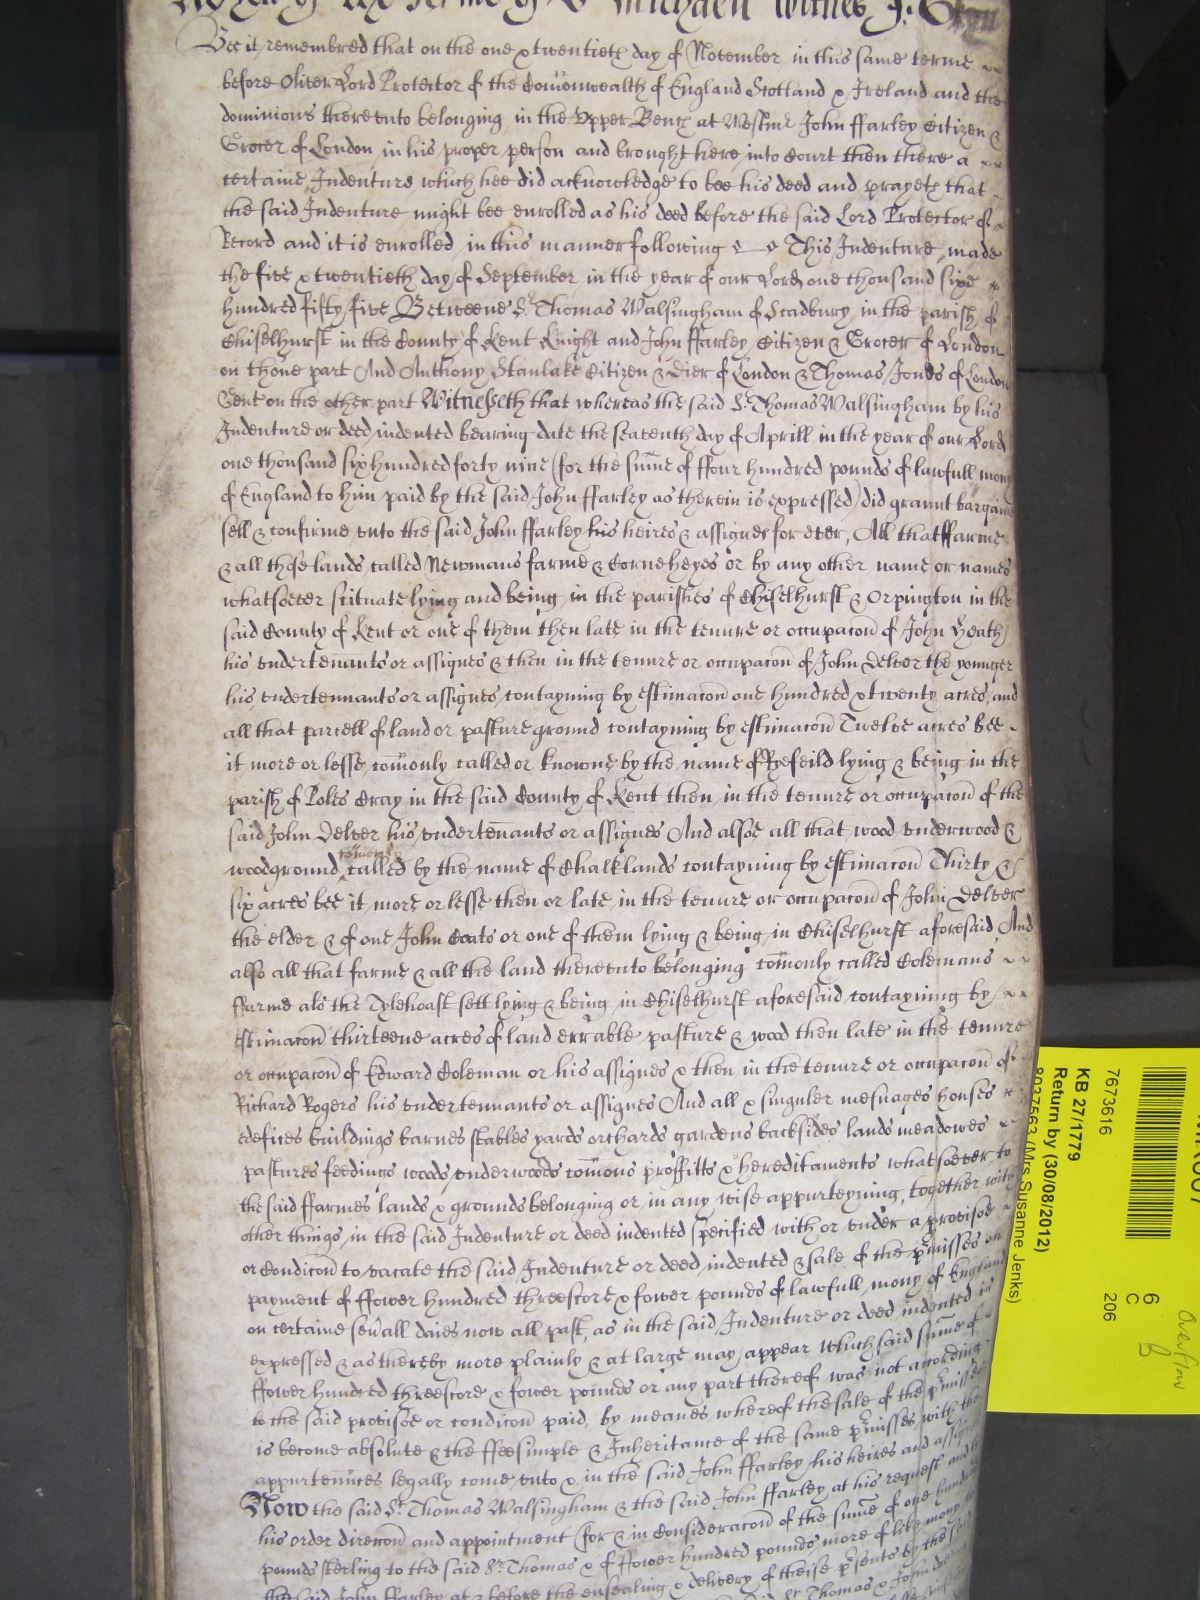 Michaell Witnes
Bee it remembred that on the one & twentieth day of November in this same terme
before Oliver Lord Protector of the Comonwealth of England Scotland & Ireland and the
dominions thereunto belonging in the Upper Bench at Westmr John ffarley Citizen &
Grocer of London in his proper person and brought here into Court then there a
certaine Indenture which hee did acknowledge to bee his deed and prayeth that
the said Indenture might bee enrolled as his deed before the said Lord Protector of
Record and it is enrolled in this manner following This Indenture made
the five & twentieth day of September in the year of our Lord one thousand sixe
hundred fifty five Betweene Sr Thomas Walsingham of Scadbury in the parish of
Chiselhurst in the County of Kent Knight and John ffarley Citizen & Grocer of London
on thone part And Anthony Stanlake Citizen & Dier of London & Thomas Jones of London
Gent on the other part Witnesseth that whereas the said Sr Thomas Walsingham by his
Indenture or deed indented bearing date the seaventh day of Aprill in the year of our Lord
one thousand six hundred forty nine (for the sume of ffour hundred pounds of lawfull mony
of England to him paid by the said John ffarley as therein is expressed) did graunt bargaine
sell & confirme unto the said John ffarley his heires & assignes for ever, All that ffarme
& all those lands called Newmans farme & Corneheyes or by any other name or names
whatsoever scituate lying and being in the parishes of Chiselhurst & Orpington in the
said County of Kent or one of them then late in the tenure or occupacon of John Heath
his undertenants or assignes & then in the tenure or occupacon of John Delver the younger
his undertennants or assignes contayning by estimacon one hundred & twenty acres, and
all that parcell of land or pasture ground contayning by estimacon Twelve acres bee
it more or lesse comonly called or knowne by the name of Ryefeild lying & being in the
parish of Poles Cray in the said County of Kent then in the tenure or occupacon of the
said John Delver his undertenants or assignes And alsoe all that wood underwood &
woodground comonly called by the name of Chalklands contayning by estimacon Thirty &
six acres bee it more or lesse then or late in the tenure or occupacon of John Delver
the elder & of one John Coats or one of them lying & being in Chiselhurst aforesaid And
also all that farme & all the land thereunto belonging comonly called Colemans
ffarme als the Tylehoast sett lying & being in Chiselhurst aforesaid contayning by
estimacon thirteene acres of land errable pasture & wood then late in the tenure
or occupacon of Edward Coleman or his assignes & then in the tenure or occupacon of
Richard Rogers his undertennants or assignes And all & singuler mesuages houses
edefices buildings barnes stables yards orchards gardens backsides lands meadowes
pastures feedings woods underwoods comons proffitts & hereditaments whatsoever to
the said ffarmes lands & grounds belonging or in any wise appurteyning, together with
other things in the said Indenture or deed indented specified with or under a provisoe
or Condicon to vacate the said Indenture or deed indented & sale of the pmisses on
payment of ffower hundred threescore & fower pounds of lawfull mony of England
on certaine sevall daies now all past, as in the said Indenture or deed indented is
expressed & as thereby more plainly & at large may appear Which said sume of
ffower hundred threescore & fower pounds or any part thereof was not according
to the said provisoe or condicon paid, by meanes whereof the sale of the pmisses
is become absolute & the ffeesimple & Inheritance of the same pmisses with the
appurtennces legally come unto & in the said John ffarley his heires and assignes
Now the said Sr Thomas Walsingham & the said John ffarley at his request and by
his order direccon and appointment (for & in Consideracon of the sume of one hundred
pounds sterling to the said Sr Thomas & of ffower hundred pounds more of like mony to
the said John ffarley at & before the ensealing & delivery of theise psents by the said
Sr Thomas & John
7673616
KB 27/1779
Return by (30/08/2012)
8037563 (Mrs Susanne Jenks)
6
C
206
Overflow